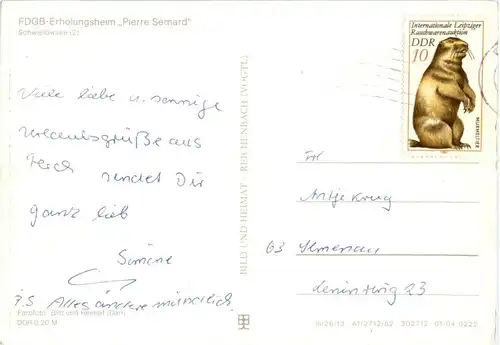 FDGB-Erholungsheim „Pierre Sémard"
Schwielowsee (2)
Viele liebe u. sonnige
Urlaubsgrüße aus
Ferch sendet Dir
ganz lieb
Simone
P.S. Alles andere mündlich
Farbfoto: Bild und Heimat
DDR 0,20 M
BILD UND HEIMAT REICHENBACH (VOGTL)
Internationale Leipziger
Rauchwarenauktion
DDR
10
MURMELTIER
Antje Krug
63 Ilmenau
Leninring 23
III/26/13 A1/2712/82 302712 01-04-0222